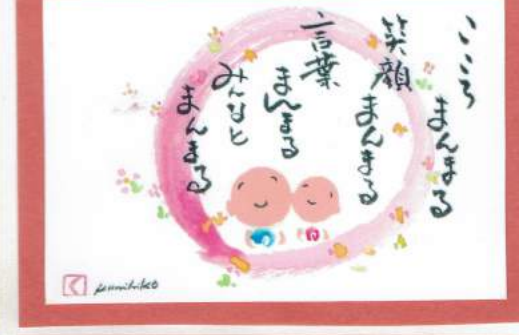 こころ
まんまる
笑顔
まんまる
言葉
まんまる
みんなと
まんまる
kunihiko